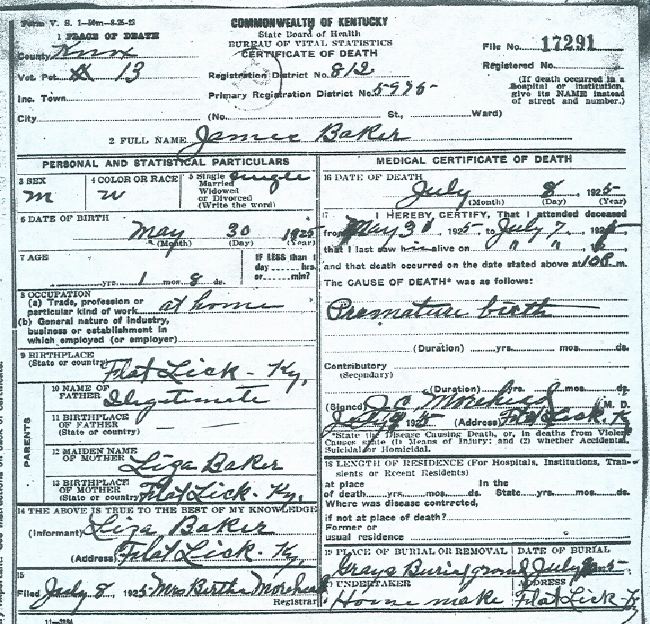 Form V. S. 1
COMMONWEALTH OF KENTUCKY
State Board of Health
BUREAU OF VITAL STATISTICS
CERTIFICATE OF DEATH
1 PLACE OF DEATH
County Knox
Vot. Pct. 13
Inc. Town
City (No. St., Ward)
Registration District No. 812
Primary Registration District No. 5975-
File No. 17291
Registered No.
(If death occurred in a
Hospital or Institution,
give its NAME instead
of street and number.)
2 FULL NAME James Baker
PERSONAL AND STATISTICAL PARTICULARS
3 SEX
m
4 COLOR OR RACE
w
5 Single
Married
Widowed
or Divorced
(Write the word)
Single
6 DATE OF BIRTH
May 30 1925
(Month) (Day) (Year)
7 AGE
yrs. 1 mos. 8 ds.
IF LESS than 1
day hrs.
or min?
8 OCCUPATION
(a) Trade, profession or
particular kind of work at home
(b) General nature of industry,
business or establishment in
which employed (or employer)
9 BIRTHPLACE
(State or country) Flat Lick - Ky.
PARENTS
10 NAME OF
FATHER Illegitimate
11 BIRTHPLACE
OF FATHER
(State or country)
12 MAIDEN NAME
OF MOTHER Liza Baker
13 BIRTHPLACE
OF MOTHER
(State or country) Flat Lick - Ky.
14 THE ABOVE IS TRUE TO THE BEST OF MY KNOWLEDGE
(Informant) Liza Baker
(Address) Flat Lick - Ky
15
Filed July 8, 1925 Mrs Birtha Morehead
Registrar
MEDICAL CERTIFICATE OF DEATH
16 DATE OF DEATH
July 8, 1925
(Month) (Day) (Year)
17 I HEREBY CERTIFY, That I attended deceased
from May 30 1925 to July 7, 1925
that I last saw him alive on " "
and that death occurred on the date stated above at 10 P. m.
The CAUSE OF DEATH* was as follows:
Premature birth
(Duration) yrs. mos. ds.
Contributory
(Secondary)
(Duration) yrs. mos. ds.
(Signed) J C Morehead M. D.
July 9 1925 (Address) Flat Lick, K
*State the Disease Causing Death, or, in deaths from Violent
Causes state (1) Means of Injury; and (2) whether Accidental,
Suicidal or Homicidal.
18 LENGTH OF RESIDENCE (For Hospitals, Institutions, Tran-
sients or Recent Residents)
at place In the
of death yrs. mos. ds. State yrs. mos. ds.
Where was disease contracted,
if not at place of death?
Former or
usual residence
19 PLACE OF BURIAL OR REMOVAL
Grays Buring ground
DATE OF BURIAL
July
UNDERTAKER
Home make
ADDRESS
Flat Lick - Ky